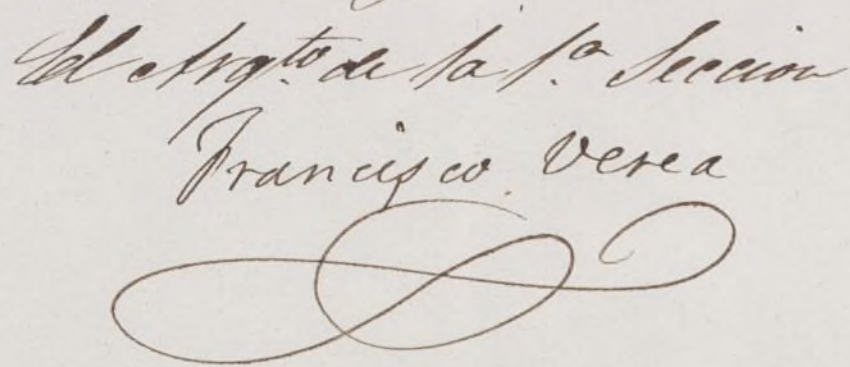 El Arqto de la 1.a Seccion
Francisco Verea